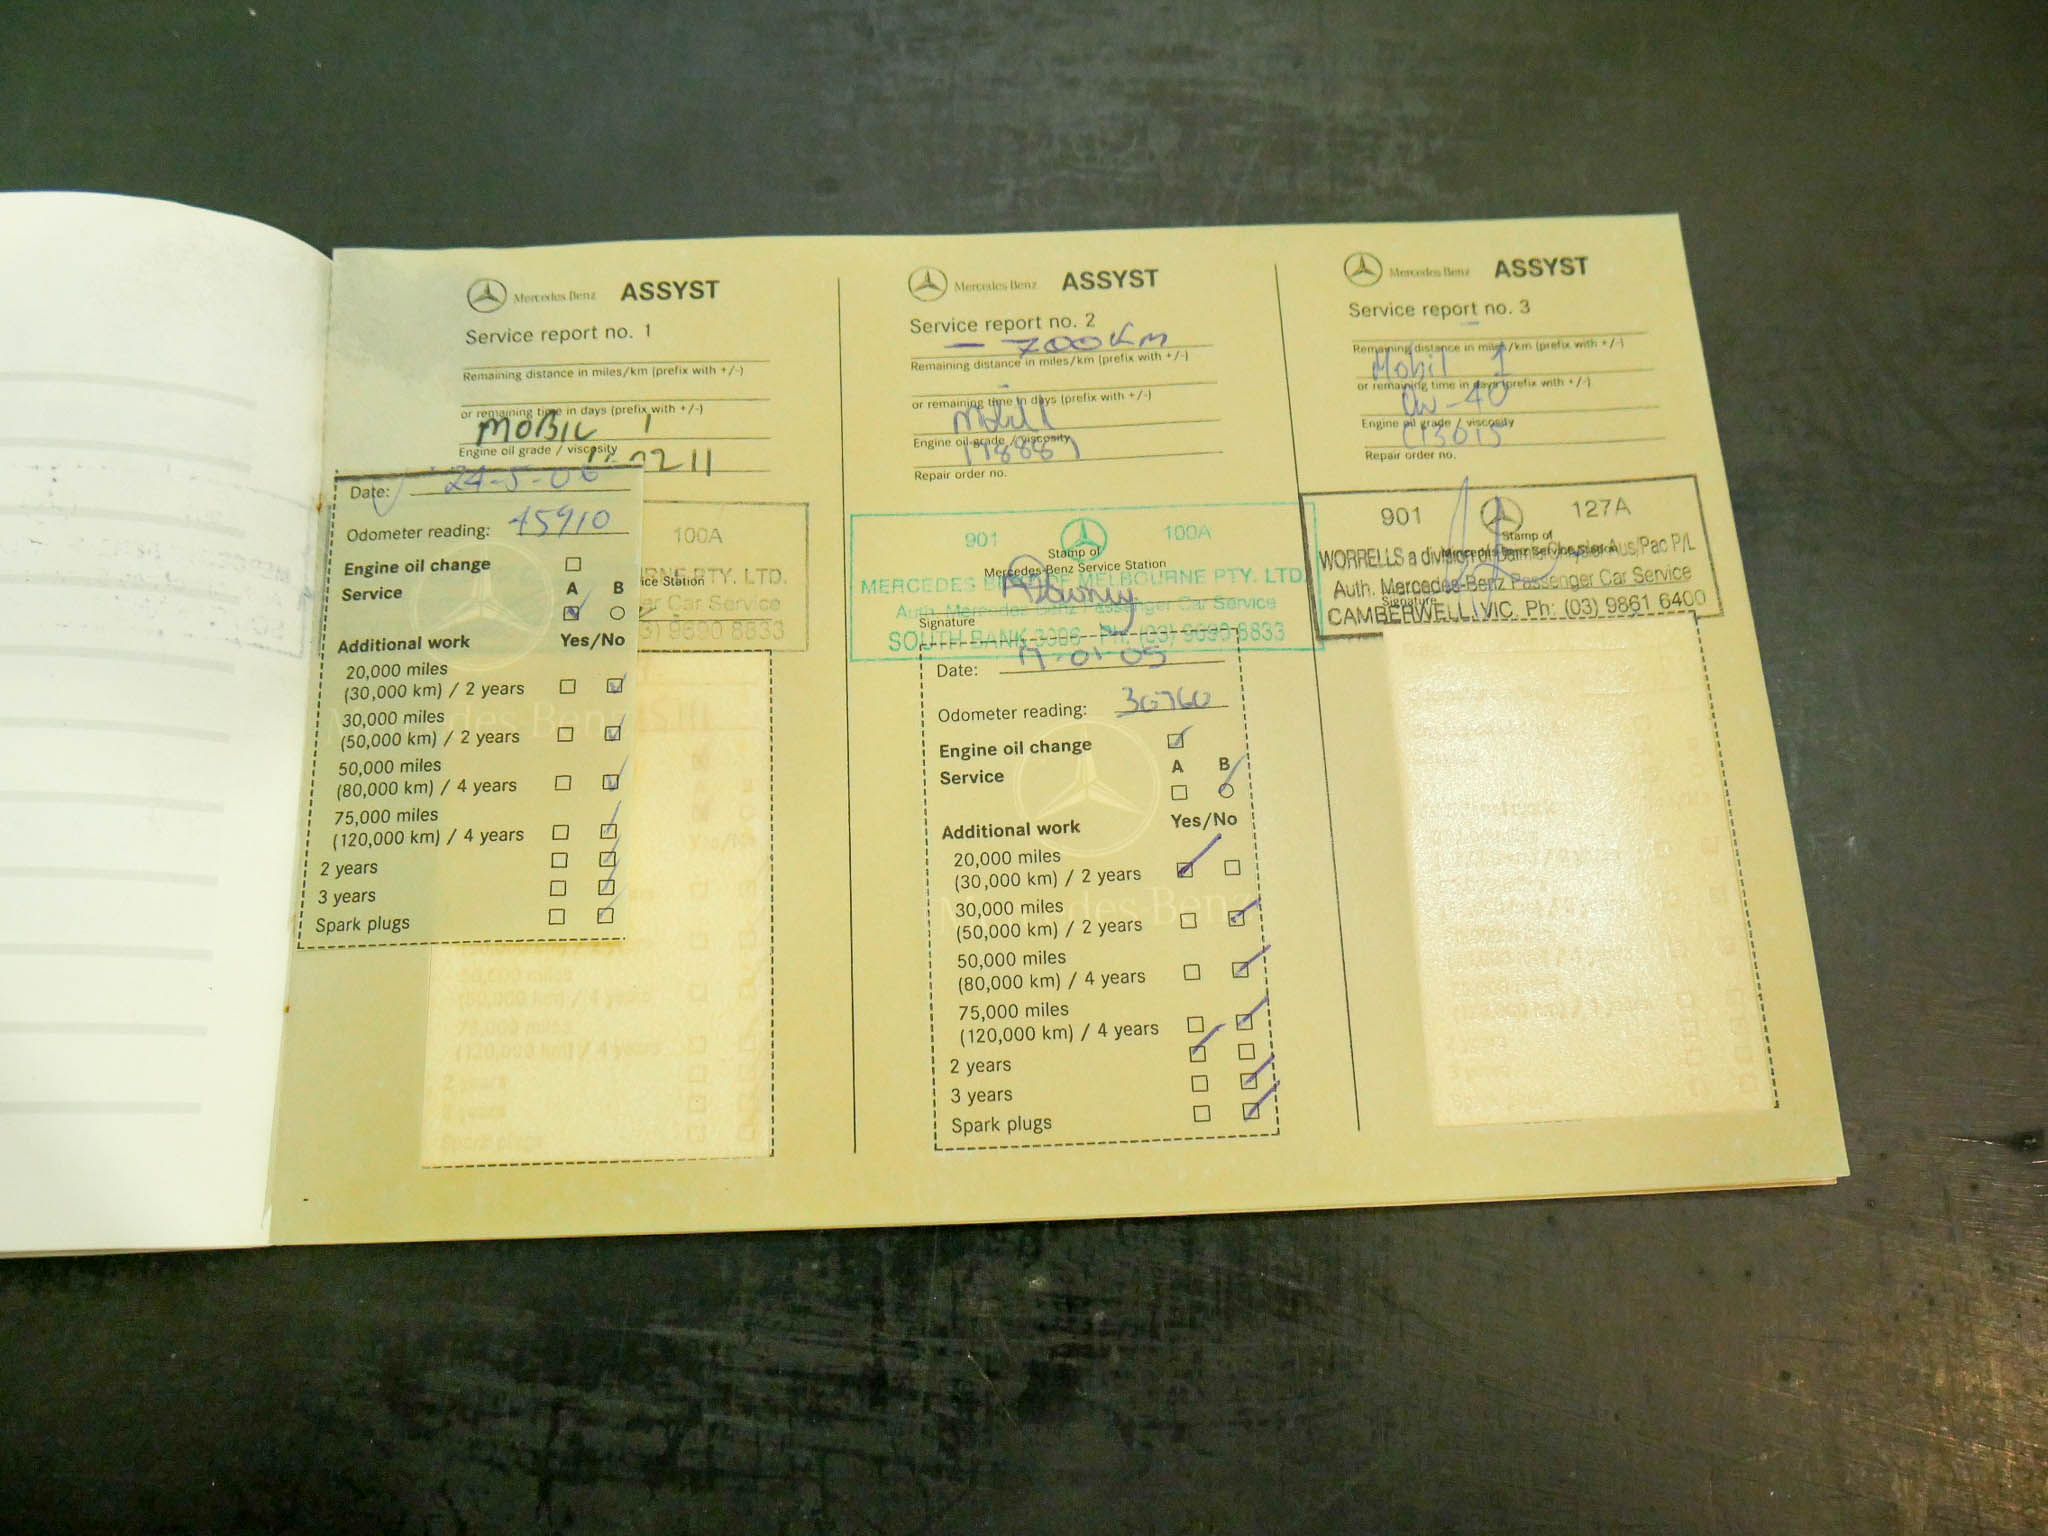 Mercedes Benz ASSYST
Service report no. 1
Remaining distance in miles/km (prefix with +/-)
or remaining time in days (prefix with +/-)
MOBIL 1
Engine oil grade / viscosity
Date: 24-5-06
Odometer reading: 45910
Engine oil change
Service A B
Additional work Yes/No
20,000 miles
(30,000 km) / 2 years
30,000 miles
(50,000 km) / 2 years
50,000 miles
(80,000 km) / 4 years
75,000 miles
(120,000 km) / 4 years
2 years
3 years
Spark plugs
100A
ice Station
RNE PTY. LTD.
er Car Service
3) 9690 8833
Mercedes Benz ASSYST
Service report no. 2
- 700 km
Remaining distance in miles/km (prefix with +/-)
or remaining time in days (prefix with +/-)
Mobil 1
Engine oil grade / viscosity
Repair order no.
901 100A
Stamp of
Mercedes-Benz Service Station
MERCEDES BENZ OF MELBOURNE PTY. LTD.
Auth. Mercedes-Benz Passenger Car Service
Signature
SOUTH BANK 3006 Ph: (03) 9690 8833
Date: 17-01-05
Odometer reading: 30760
Engine oil change
Service A B
Additional work Yes/No
20,000 miles
(30,000 km) / 2 years
30,000 miles
(50,000 km) / 2 years
50,000 miles
(80,000 km) / 4 years
75,000 miles
(120,000 km) / 4 years
2 years
3 years
Spark plugs
Mercedes Benz ASSYST
Service report no. 3
Remaining distance in miles/km (prefix with +/-)
Mobil 1
or remaining time in days (prefix with +/-)
0w-40
Engine oil grade / viscosity
Repair order no.
901 127A
Stamp of
Mercedes-Benz Service Station
WORRELLS a division of DaimlerChrysler Aus/Pac P/L
Auth. Mercedes-Benz Passenger Car Service
Signature
CAMBERWELL, VIC. Ph: (03) 9861 6400